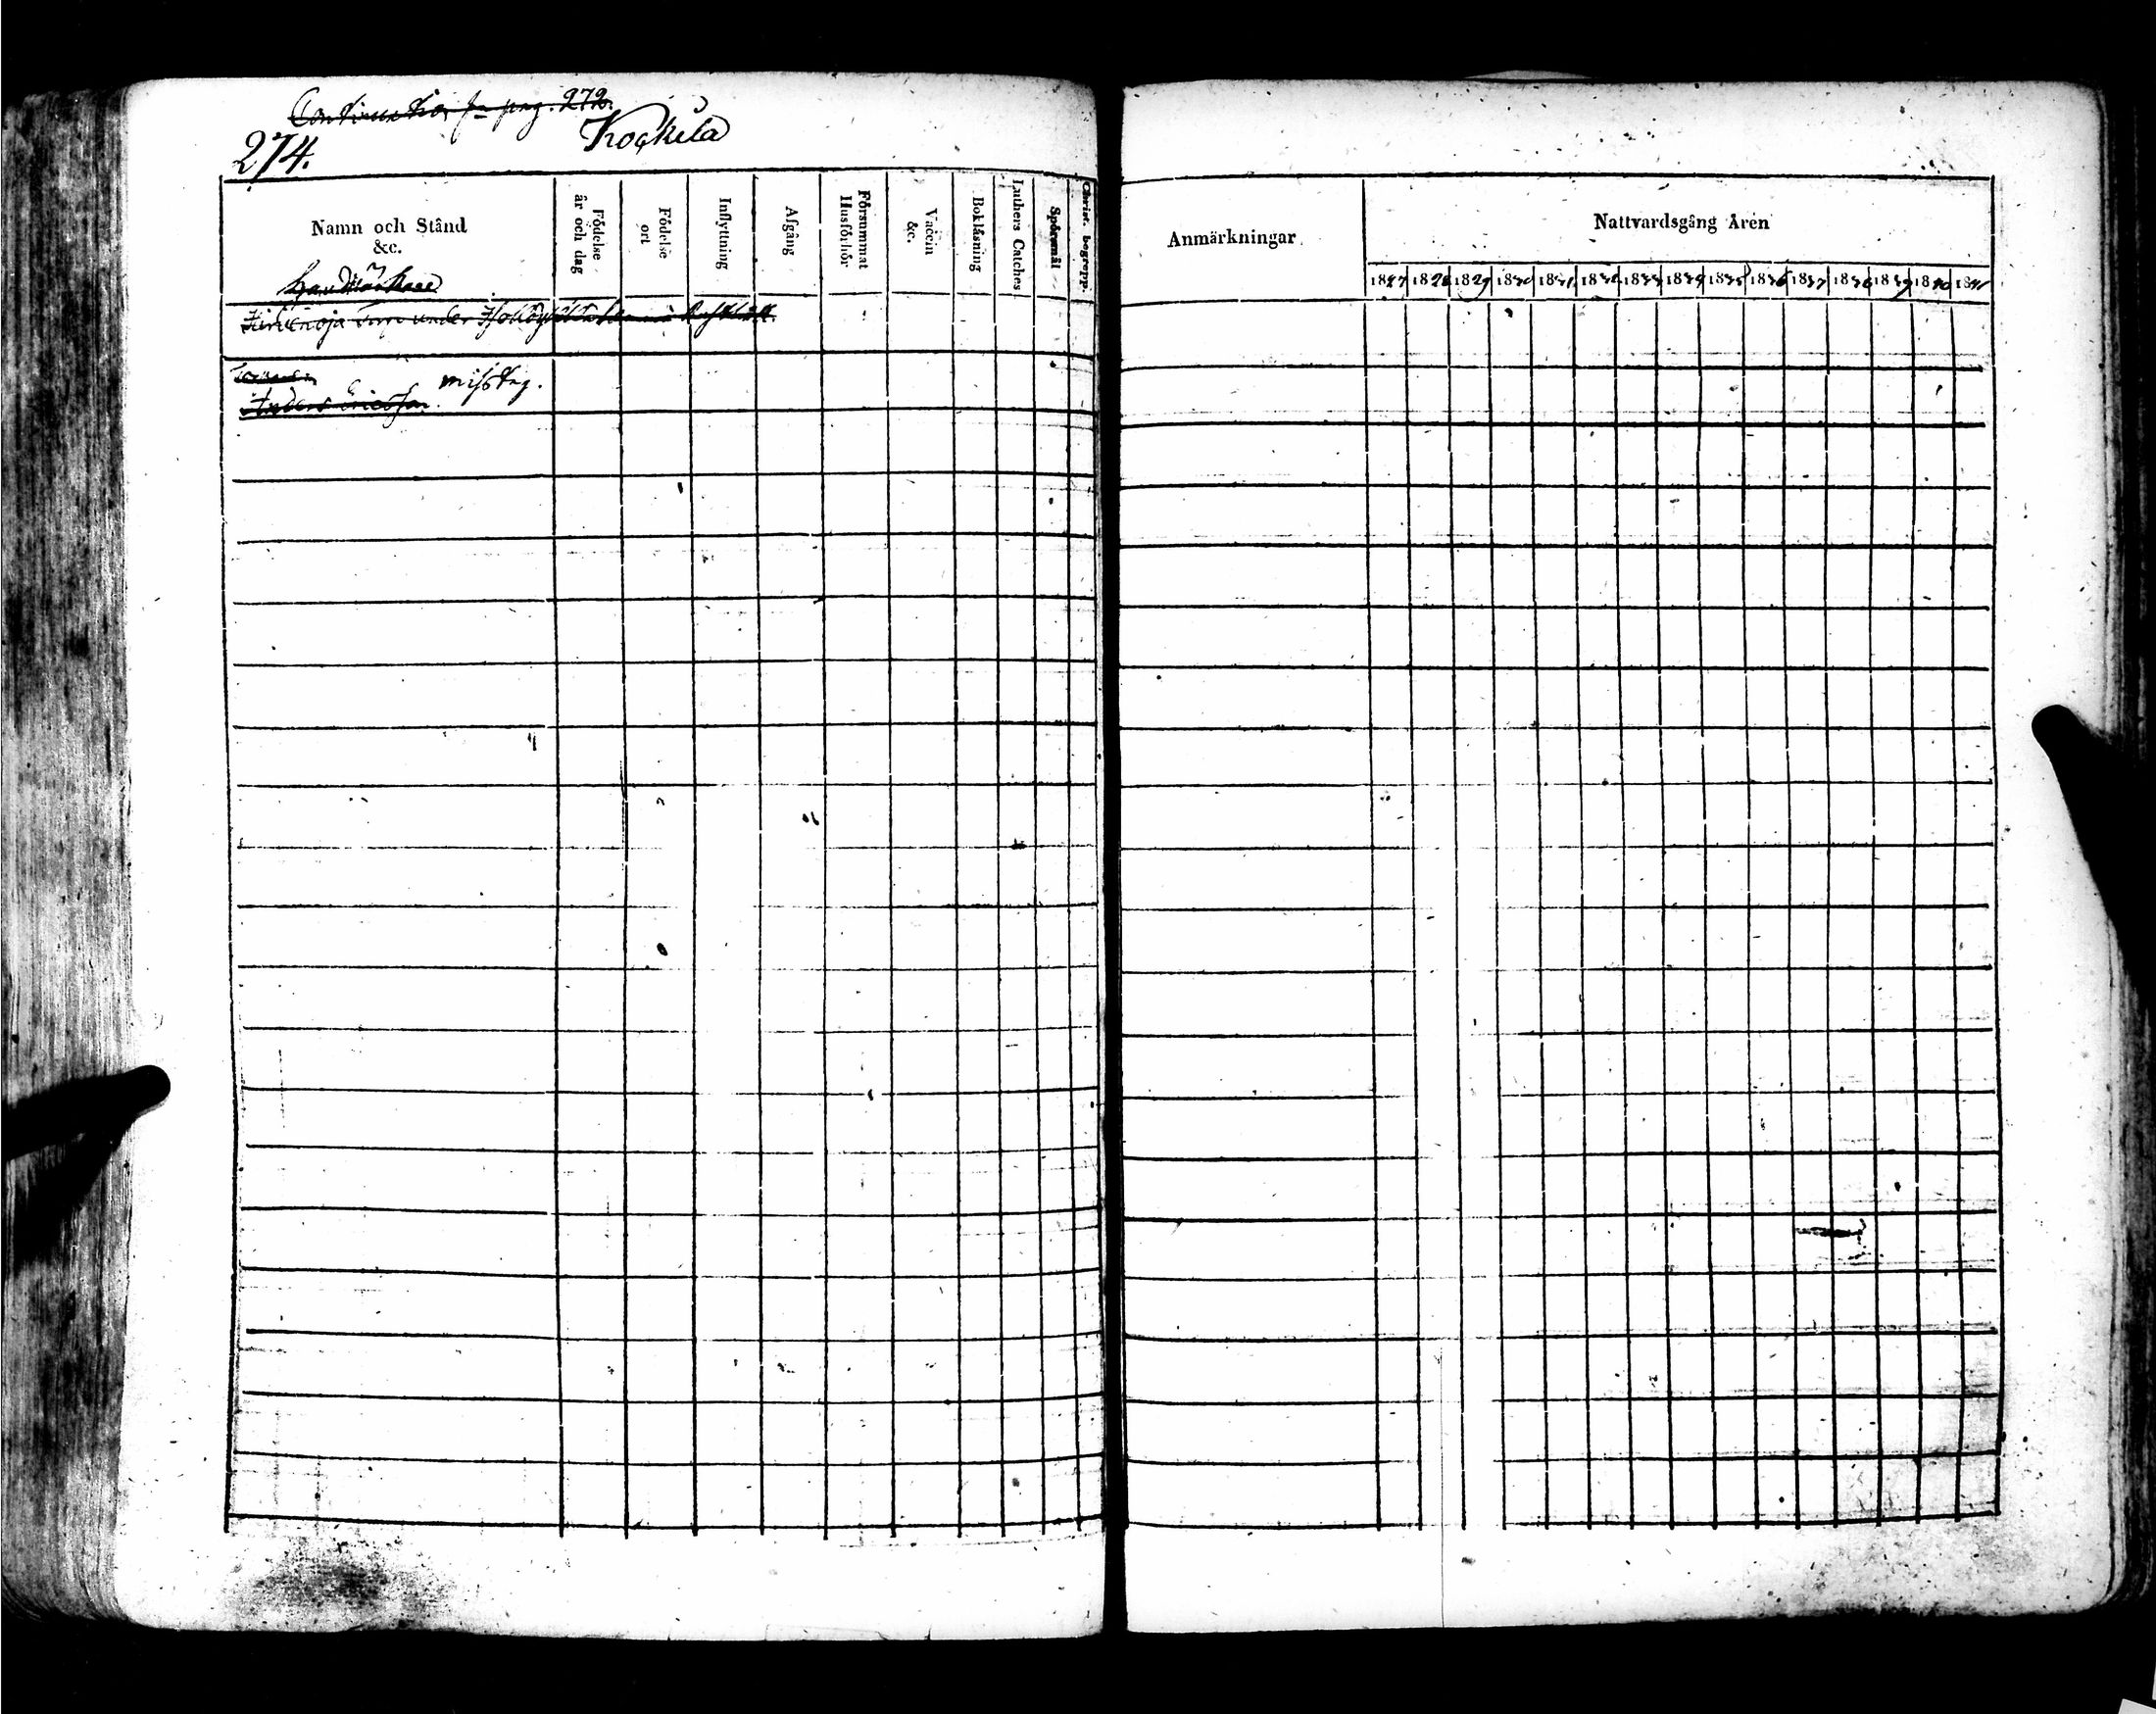 Continuatio fr pag. 272.
274.
Kockila
Namn och Stånd
&c.
Födelse
år och dag
Födelse
ort
Inflyttning
Afgång
Försummat
Husförhör
Vaccin
&c.
Boklåsning
Luthers Catches
Spörsmål
Christ. begrepp.
Anmärkningar
Nattvardsgång Åren
1827 1828 1829 1830 1831 1832 1833 1834 1835 1836 1837 1838 1839 1840 1841
Torp under
misstag.
Anders Ericsson